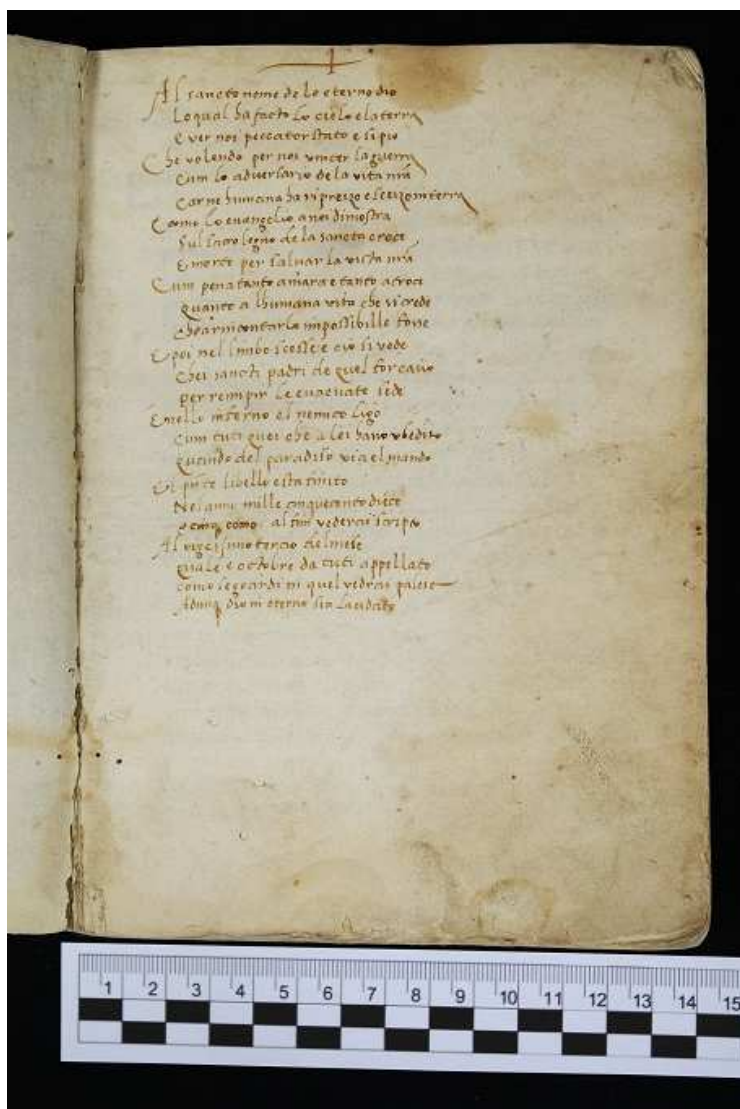 Al sancto nome de lo eterno dio
Loqual ha facto Lo cielo e laterra
E ver noi peccator stato e si pio
Che volendo per noi vincer la guerra
Cum lo adversario de la vita nrã
Carne humana ha si preso e in terra
Como lo evangelio a noi dimostra
Sul sacro legno de la sancta croce
E morte per salvar la vita nrã
Cum pena tanto amara e tanto atroci
quanto a lhumana vita che si crede
impossibille fosse
E poi nel limbo scosse e cio si vede
Chei sancti padri de quel
per rempir le evacuate sede
E nello inferno el nemico ligo
Cum tuti quei che a lei hano ubedito
quando del paradiso via el mando
libello esta finito
Nei anni mille cinquecento diece
e cinq como al fin vederai
Al vigesimo tercio del mese
quale e octobre da tuti appellato
como in quel vedrai palese
Adunq dio in eterno sia Laudato
1 2 3 4 5 6 7 8 9 10 11 12 13 14 15